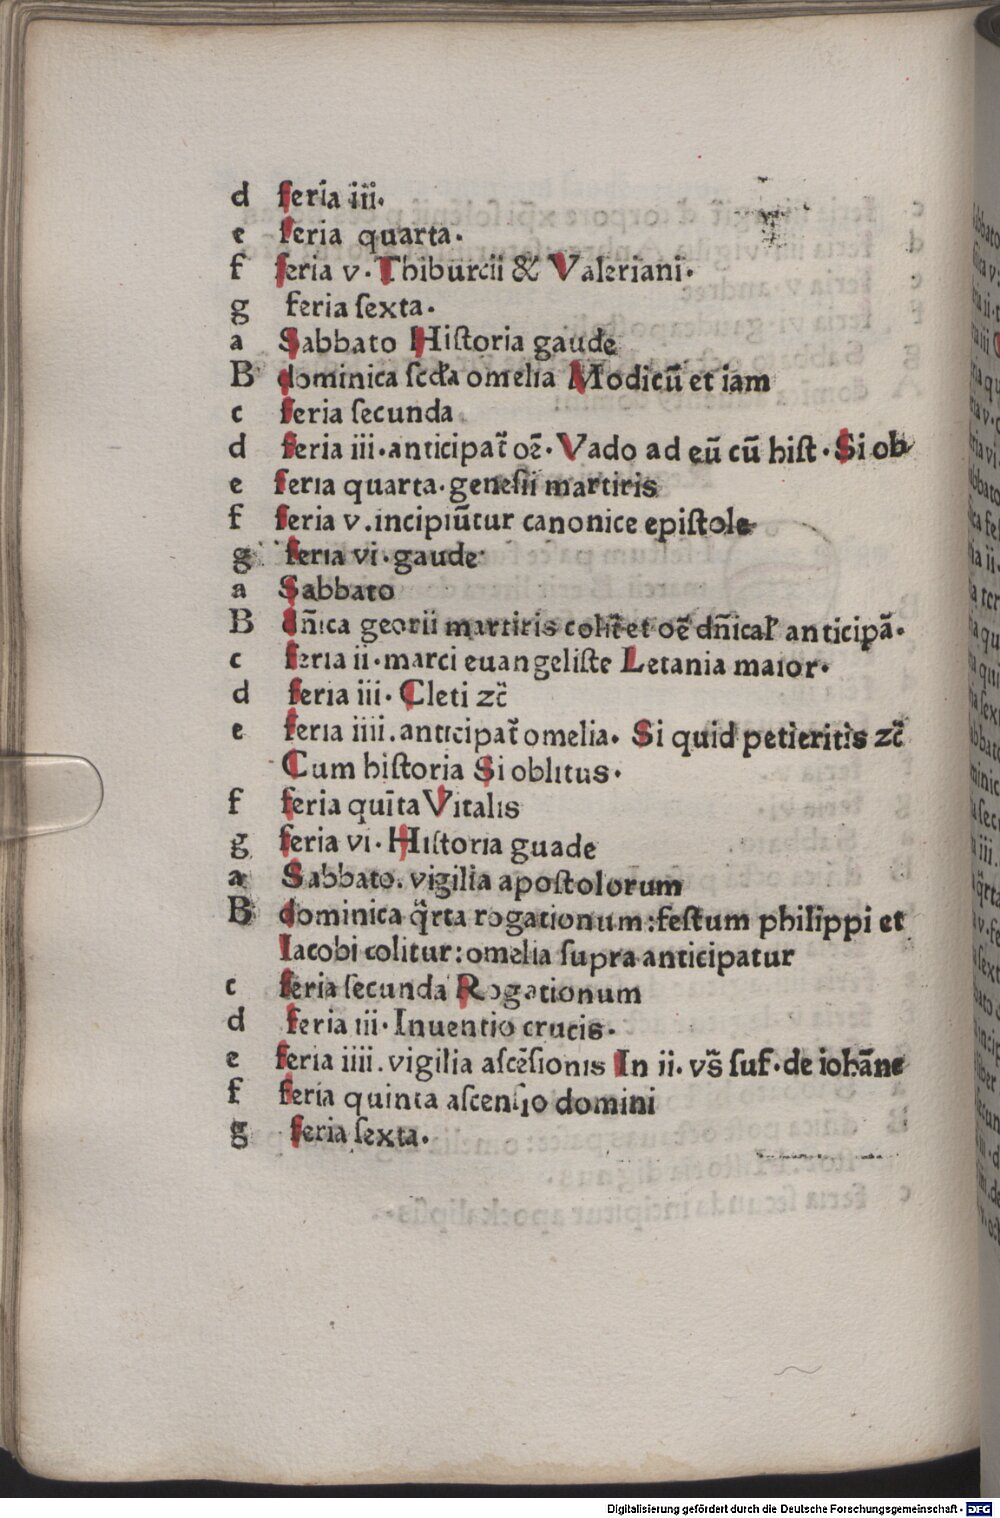 d feria iii.
e feria quarta.
f feria v. Thiburcii & Valeriani.
g feria ſexta.
a Sabbato Hiſtoria gaude
B dominica ſcda omelia Modicū et iam
c feria ſecunda
d feria iii. anticipat̄ oē. Vado ad eū cū hiſt. Si ob
e feria quarta. geneſii martiris
f feria v. incipiūtur canonice epiſtole
g feria vi. gaude
a Sabbato
B dn̄ica georii martiris colit̄ et oē dn̄ical' anticipā.
c feria ii. marci euangeliſte Letania maior.
d feria iii. Cleti zc̄
e feria iiii. anticipat̄ omelia. Si quid petieritis zc̄
Cum hiſtoria Si oblitus.
f feria quīta Vitalis
g feria vi. Hiſtoria guade
a Sabbato. vigilia apoſtolorum
B dominica q̄rta rogationum: feſtum philippi et
Iacobi colitur: omelia ſupra anticipatur
c feria ſecunda Rogationum
d feria iii. Inuentio crucis.
e feria iiii. vigilia aſcēſionis In ii. vs̄ ſuf. de iohāne
f feria quinta aſcenſio domini
g feria ſexta.
Digitalisierung gefördert durch die Deutsche Forschungsgemeinschaft - DFG